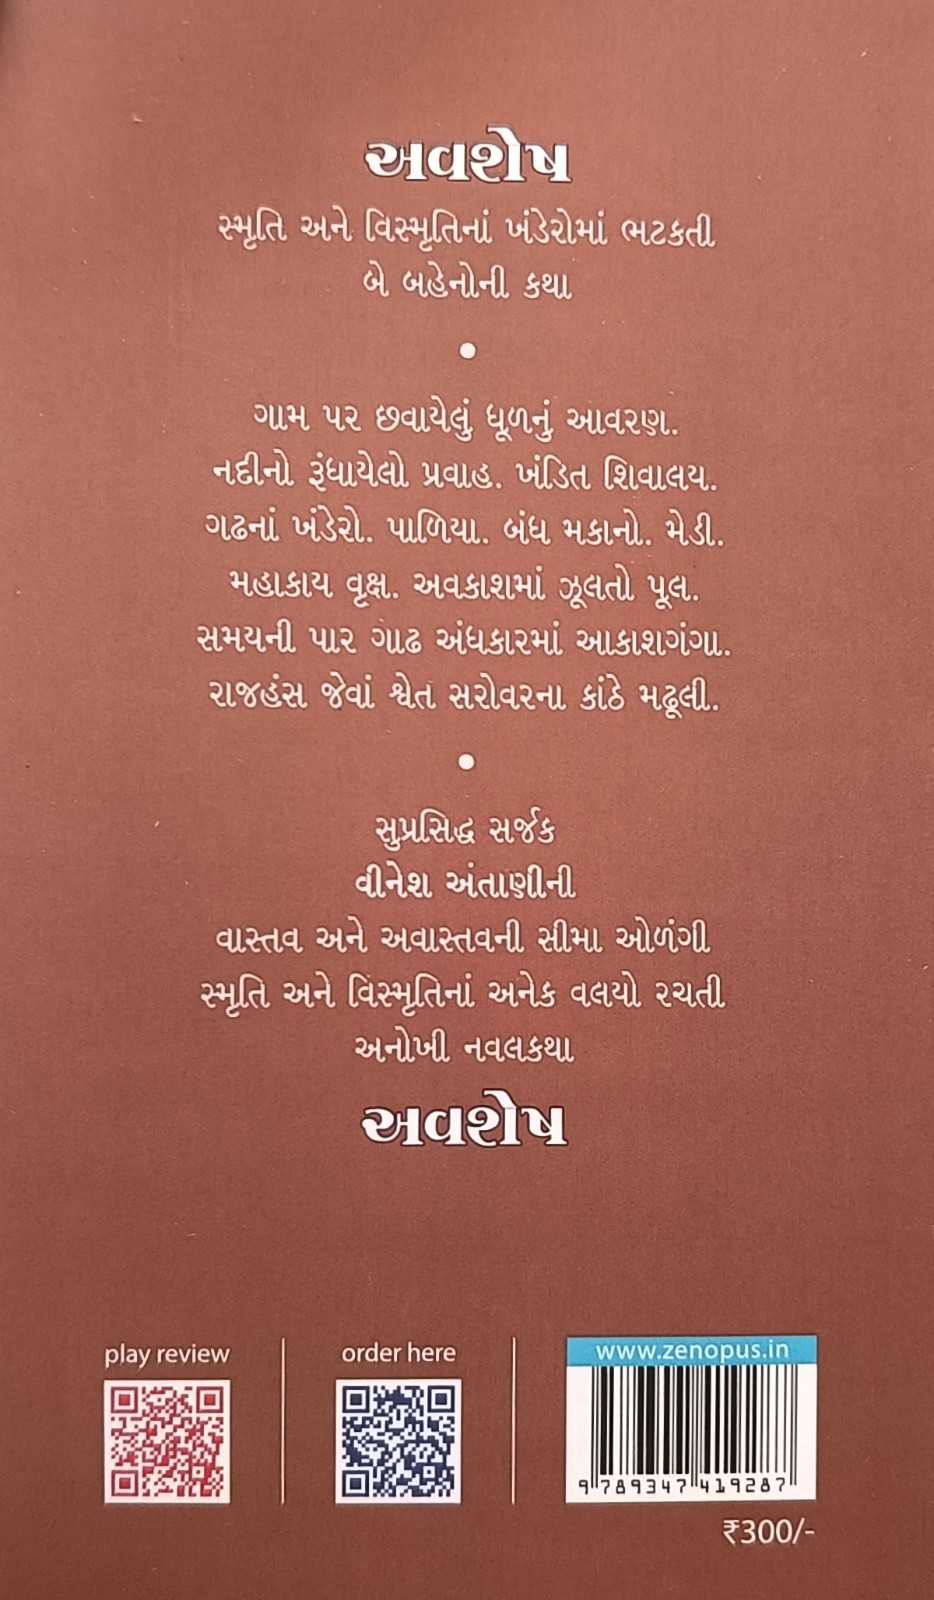 અવશેષ
સ્મૃતિ અને વિસ્મૃતિનાં ખંડેરોમાં ભટકતી
બે બહેનોની કથા
•
ગામ પર છવાયેલું ધૂળનું આવરણ.
નદીનો રૂંધાયેલો પ્રવાહ. ખંડિત શિવાલય.
ગઢનાં ખંડેરો. પાળિયા. બંધ મકાનો. મેડી.
મહાકાય વૃક્ષ. અવકાશમાં ઝૂલતો પૂલ.
સમયની પાર ગાઢ અંધકારમાં આકાશગંગા.
રાજહંસ જેવાં શ્વેત સરોવરના કાંઠે મઢૂલી.
•
સુપ્રસિદ્ધ સર્જક
વીનેશ અંતાણીની
વાસ્તવ અને અવાસ્તવની સીમા ઓળંગી
સ્મૃતિ અને વિસ્મૃતિનાં અનેક વલયો રચતી
અનોખી નવલકથા
અવશેષ
play review
order here
www.zenopus.in
9 789347 419287
₹300/-